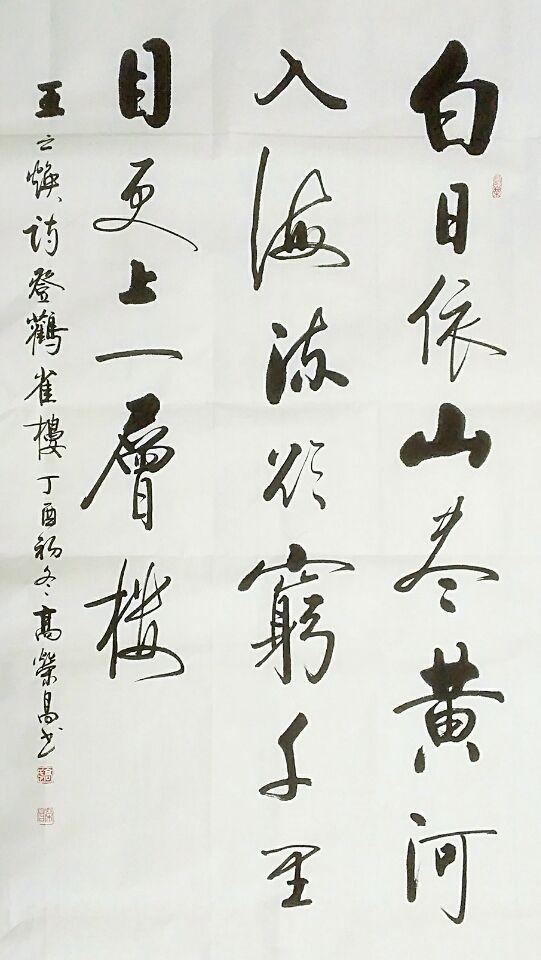 白日依山尽黄河
入海流欲窮千里
目更上一層楼
王之焕诗登鸛雀樓丁酉初冬高榮昌书